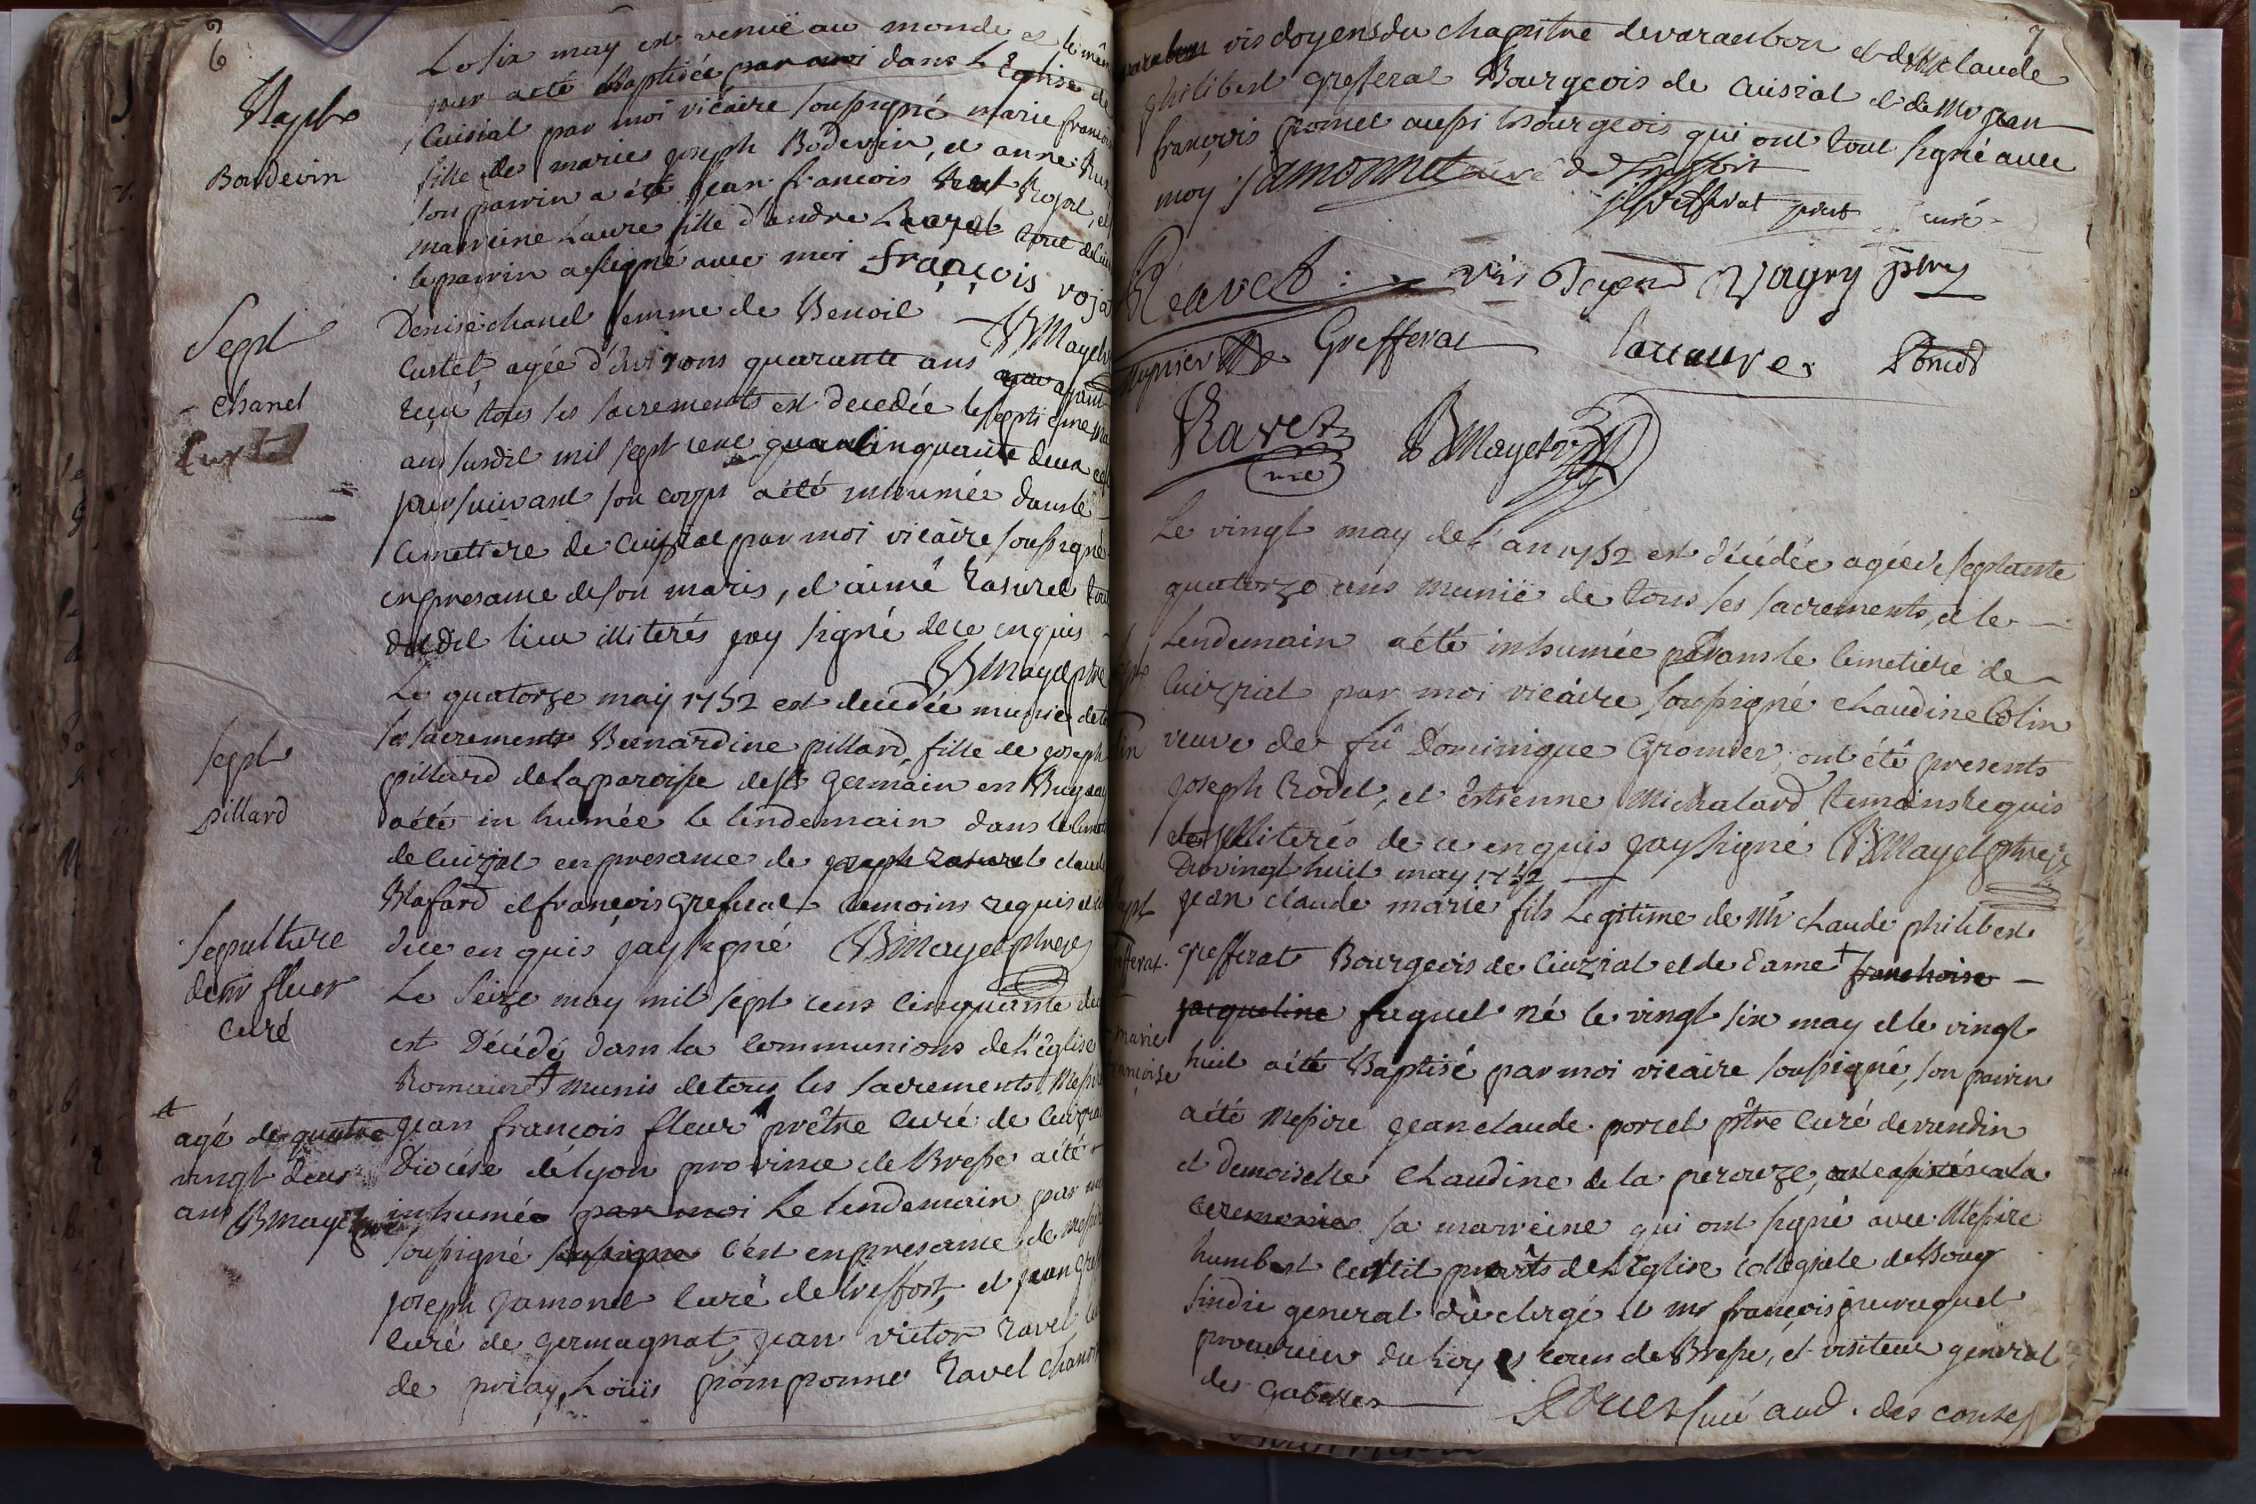 6
Le six may est venuë au monde et le mêm
jour a eté Baptisée par moi dans L'Eglise de
Cuisiat par moi vicaire soussigné marie françoi
Bapt
Baudevin
fille de maries joseph Bodevin, et anne
son parrin a été jean francois Royat, et
marreine Laure fille d'andre
le parrin a signé avec moi françois roja
BMayet
Sept
Chanel
Curtet
Denise chanel femme de Benoit
Curtet, agée d'environs quarante ans ayant
reçu tous ses sacrements est decedée le septieme ma
an susdit mil sept cent cinquante deux et le
jour suivant son corps a été inhumée dans le
Cimettiere de Cuisiat par moi vicaire soussigné
en presance de son maris, et aimé Rasurel tou
dudit lieu illiterés jay signé de ce enquis
BMayet ptre
Sept
pillard
Le quatorze maij 1752 est decedée munie de to
ses sacrements Bernardine pillard, fille de joseph
pillard de la paroisse de St germain en Bugeay
a été in humée le lendemain dans le cimet
de Cuiziat en presance de joseph rasurel claude
Mafard et françois grefferat temoins requis et
de ce enquis jay signé BMayet ptre
Sepulture
de mr fleur
Curé
Le Seize may mil sept cens cinquante de
est Décédé dans la communions de L'Eglise
Romaine † munis de tous les sacrements Messir
jean françois fleur prêtre curé de Cuiziat
Diocése de lyon province de Bresse a été
inhumée par moi le lendemain par moi
soussigné soussigné c'est en presance de messir
joseph jamonet curé de treffort, et jean gref
curé de germagnat, jean victor ravet cu
de priay, Loüis pomponne Ravet chanoi
† agé de quatre
vingt deux
ans BMayet ptre
7
varambon vis doyens du chapitre de varambon et de Mr claude
philibert grefferat Bourgeois de cuisiat et de Mr jean
françois gromet aussi bourgeois qui ont tout signé avec
moy jamonnet curé de treffort
grefferat ptre curé
Ravet : vis Doyend Vagny ptre
Grefferat
Ravet
curé BMayet
Le vingt may de l'an 1752 est décédée agée de septante
quatorze ans munië de tous ses sacrements, et le
Lendemain a été inhumée dans le cimetiere de
Cuiziat par moi vicaire soussigné chaudine Colin
veuve de fû Dominique Gromier, ont été presents
joseph Rodet, et Estienne Michalard temoins requis
illiterés de ce enquis jay signé BMayet ptre vic
Du vingt huit may 1752
jean claude marie fils Legitime de Mr chaude philibert
grefferat Bourgeois de Ciuziat et de Dame † franchoise
jacqueline faguet né le vingt six may et le vingt
† marie
françoise
huit a été Baptisé par moi vicaire soussigné, son parrin
a été Messire jean claude porcel ptre curé de verendin
et Demoiselle Chaudine de la perouze,
ceremonies sa marreine qui ont signé avec Messire
humbert prevôts de L'Eglise collegiale de Bourg
sindic general du clergé et mr françois
procureur du Roy es cour de Bresse, et visiteur général
des Gabelles